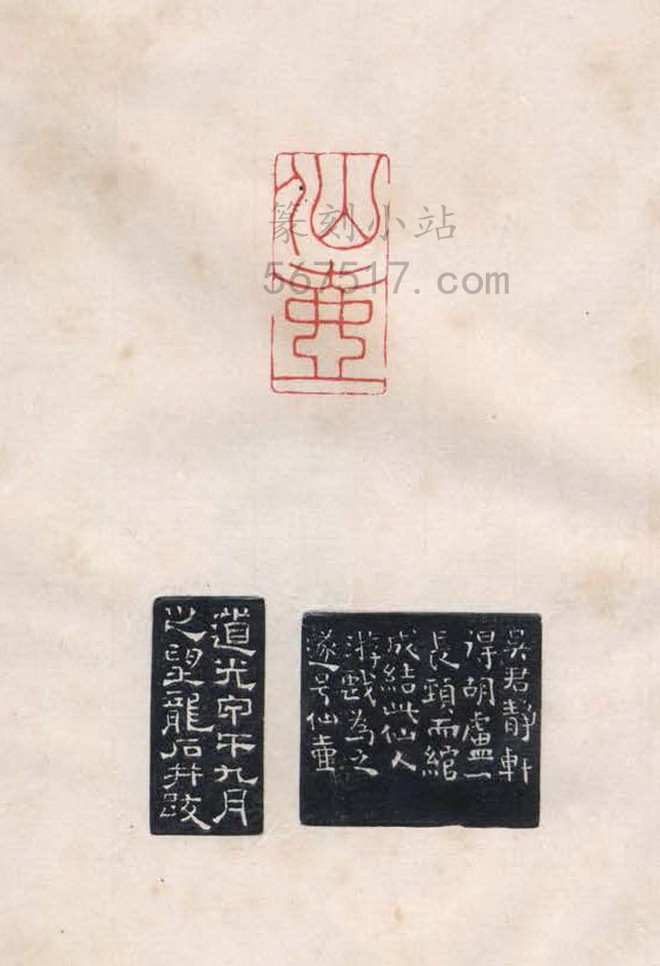 仙壺
篆刻小站
567517.com
吳君静軒
得胡盧一
長頸而綰
成結此仙人
游戲為之
遂号仙壺
道光甲午九月
之望龍石并跋